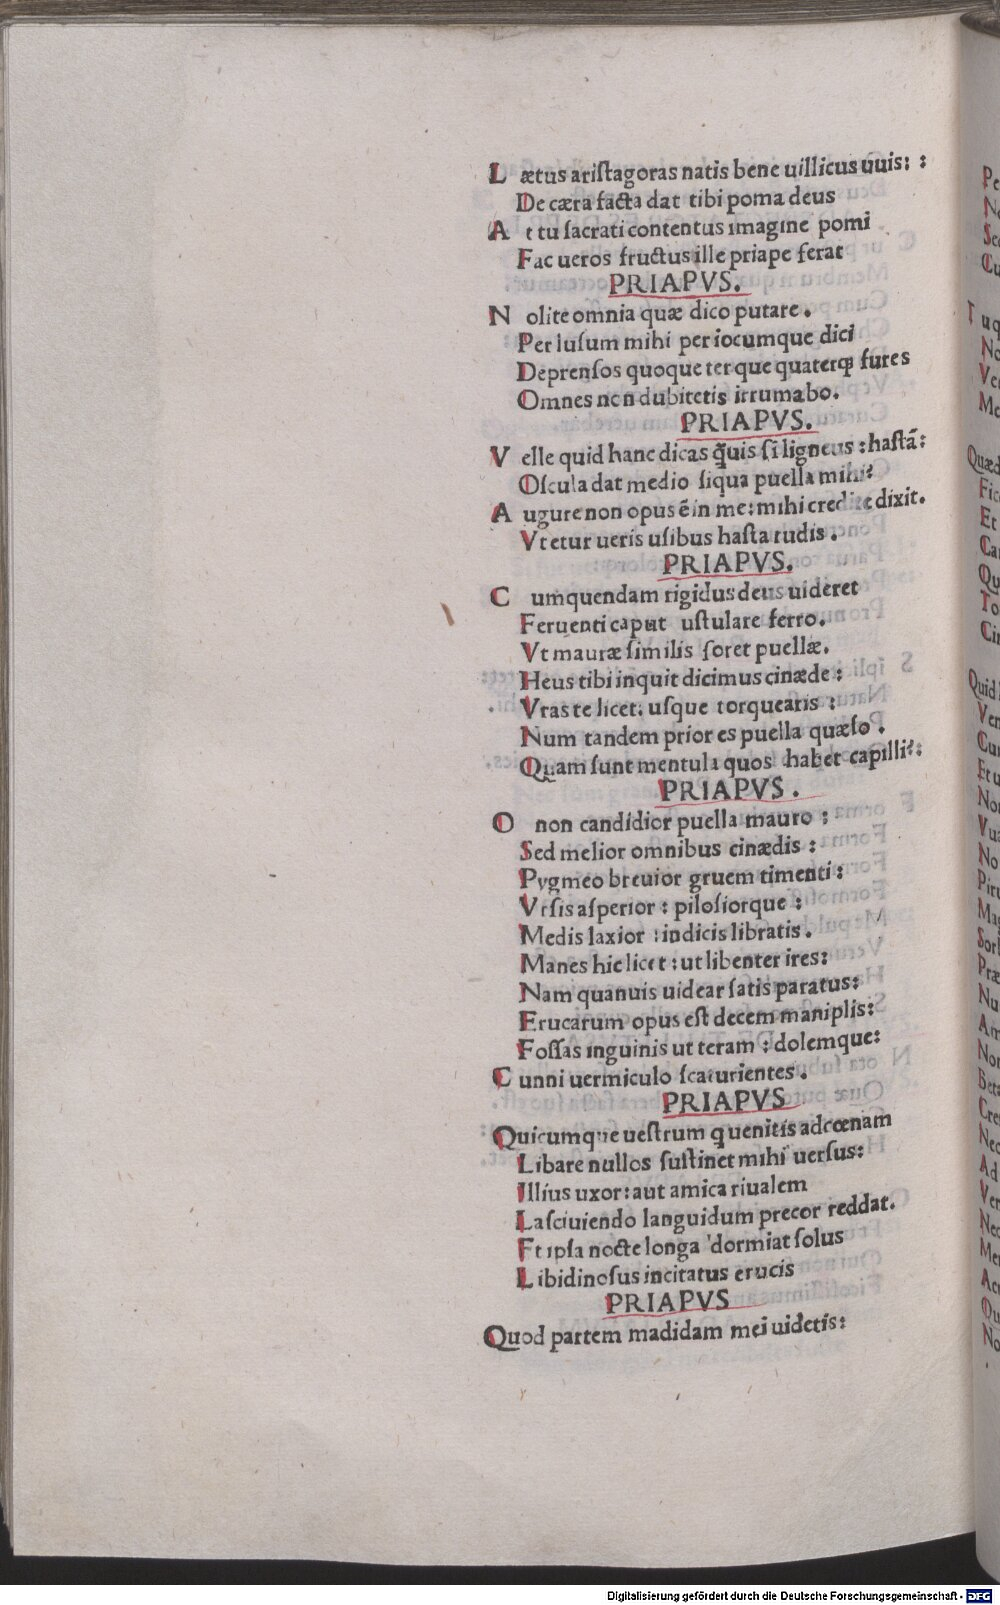 Lætus aristagoras natis bene uillicus uuis: :
De cæra facta dat tibi poma deus
At tu sacrati contentus imagine pomi
Fac ueros fructus ille priape ferat
PRIAPVS.
Nolite omnia quæ dico putare.
Per lusum mihi per iocumque dici
Deprensos quoque ter que quaterqꝫ fures
Omnes non dubitetis irrumabo.
PRIAPVS.
Velle quid hanc dicas q̃uis si ligneus : hastã:
Oscula dat medio siqua puella mihi?
Augure non opus ẽ in me: mihi credite dixit.
Vtetur ueris usibus hasta rudis.
PRIAPVS.
Cumquendam rigidus deus uideret
Feruenti caput ustulare ferro.
Vt mauræ similis foret puellæ.
Heus tibi inquit dicimus cinæde:
Vras te licet. usque torquearis :
Num tandem prior es puella quæso.
Quam sunt mentula quos habet capilli?:
PRIAPVS.
O non candidior puella mauro :
Sed melior omnibus cinædis :
Pygmeo breuior gruem timenti:
Vrsis asperior : pilosiorque :
Medis laxior : indicis libratis.
Manes hic licet : ut libenter ires:
Nam quanuis uidear satis paratus:
Erucarum opus est decem maniplis:
Fossas inguinis ut teram : dolemque:
Cunni uermiculo scaturientes.
PRIAPVS
Quicumque uestrum q̃ uenitis ad cœnam
Libare nullos sustinet mihi uersus:
Illius uxor: aut amica riualem
Lasciuiendo languidum precor reddat.
Et ipsa nocte longa dormiat solus
Libidinosus incitatus erucis
PRIAPVS
Quod partem madidam mei uidetis:
Digitalisierung gefördert durch die Deutsche Forschungsgemeinschaft - DFG